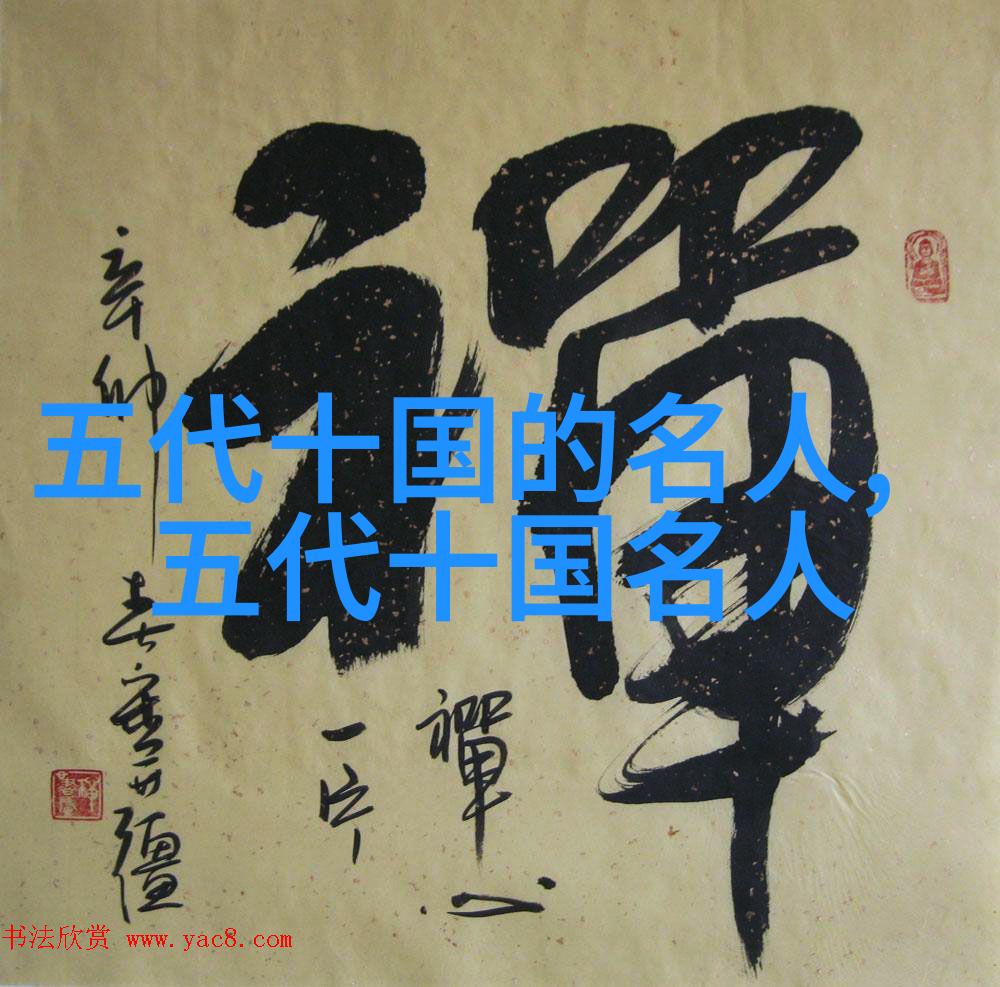 禪
五代十国的名人,
五代十国名人
禪心
一片
辛卯春
书法欣赏 www.yac8.com